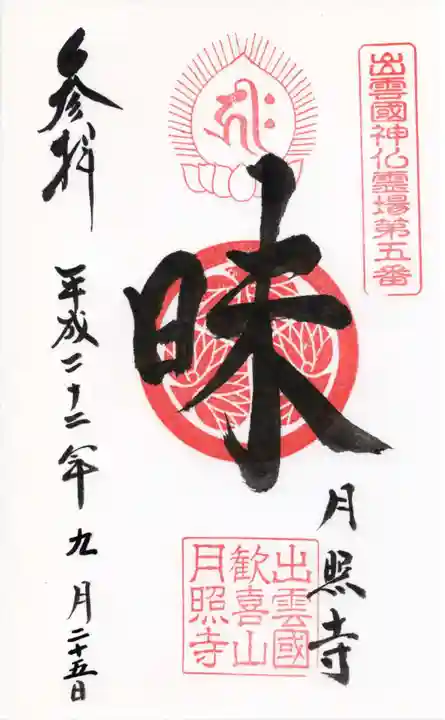 出雲國神仏霊場第五番
月照寺
昧
出雲國
歓喜山
月照寺
参拝
平成二十二年九月二十五日